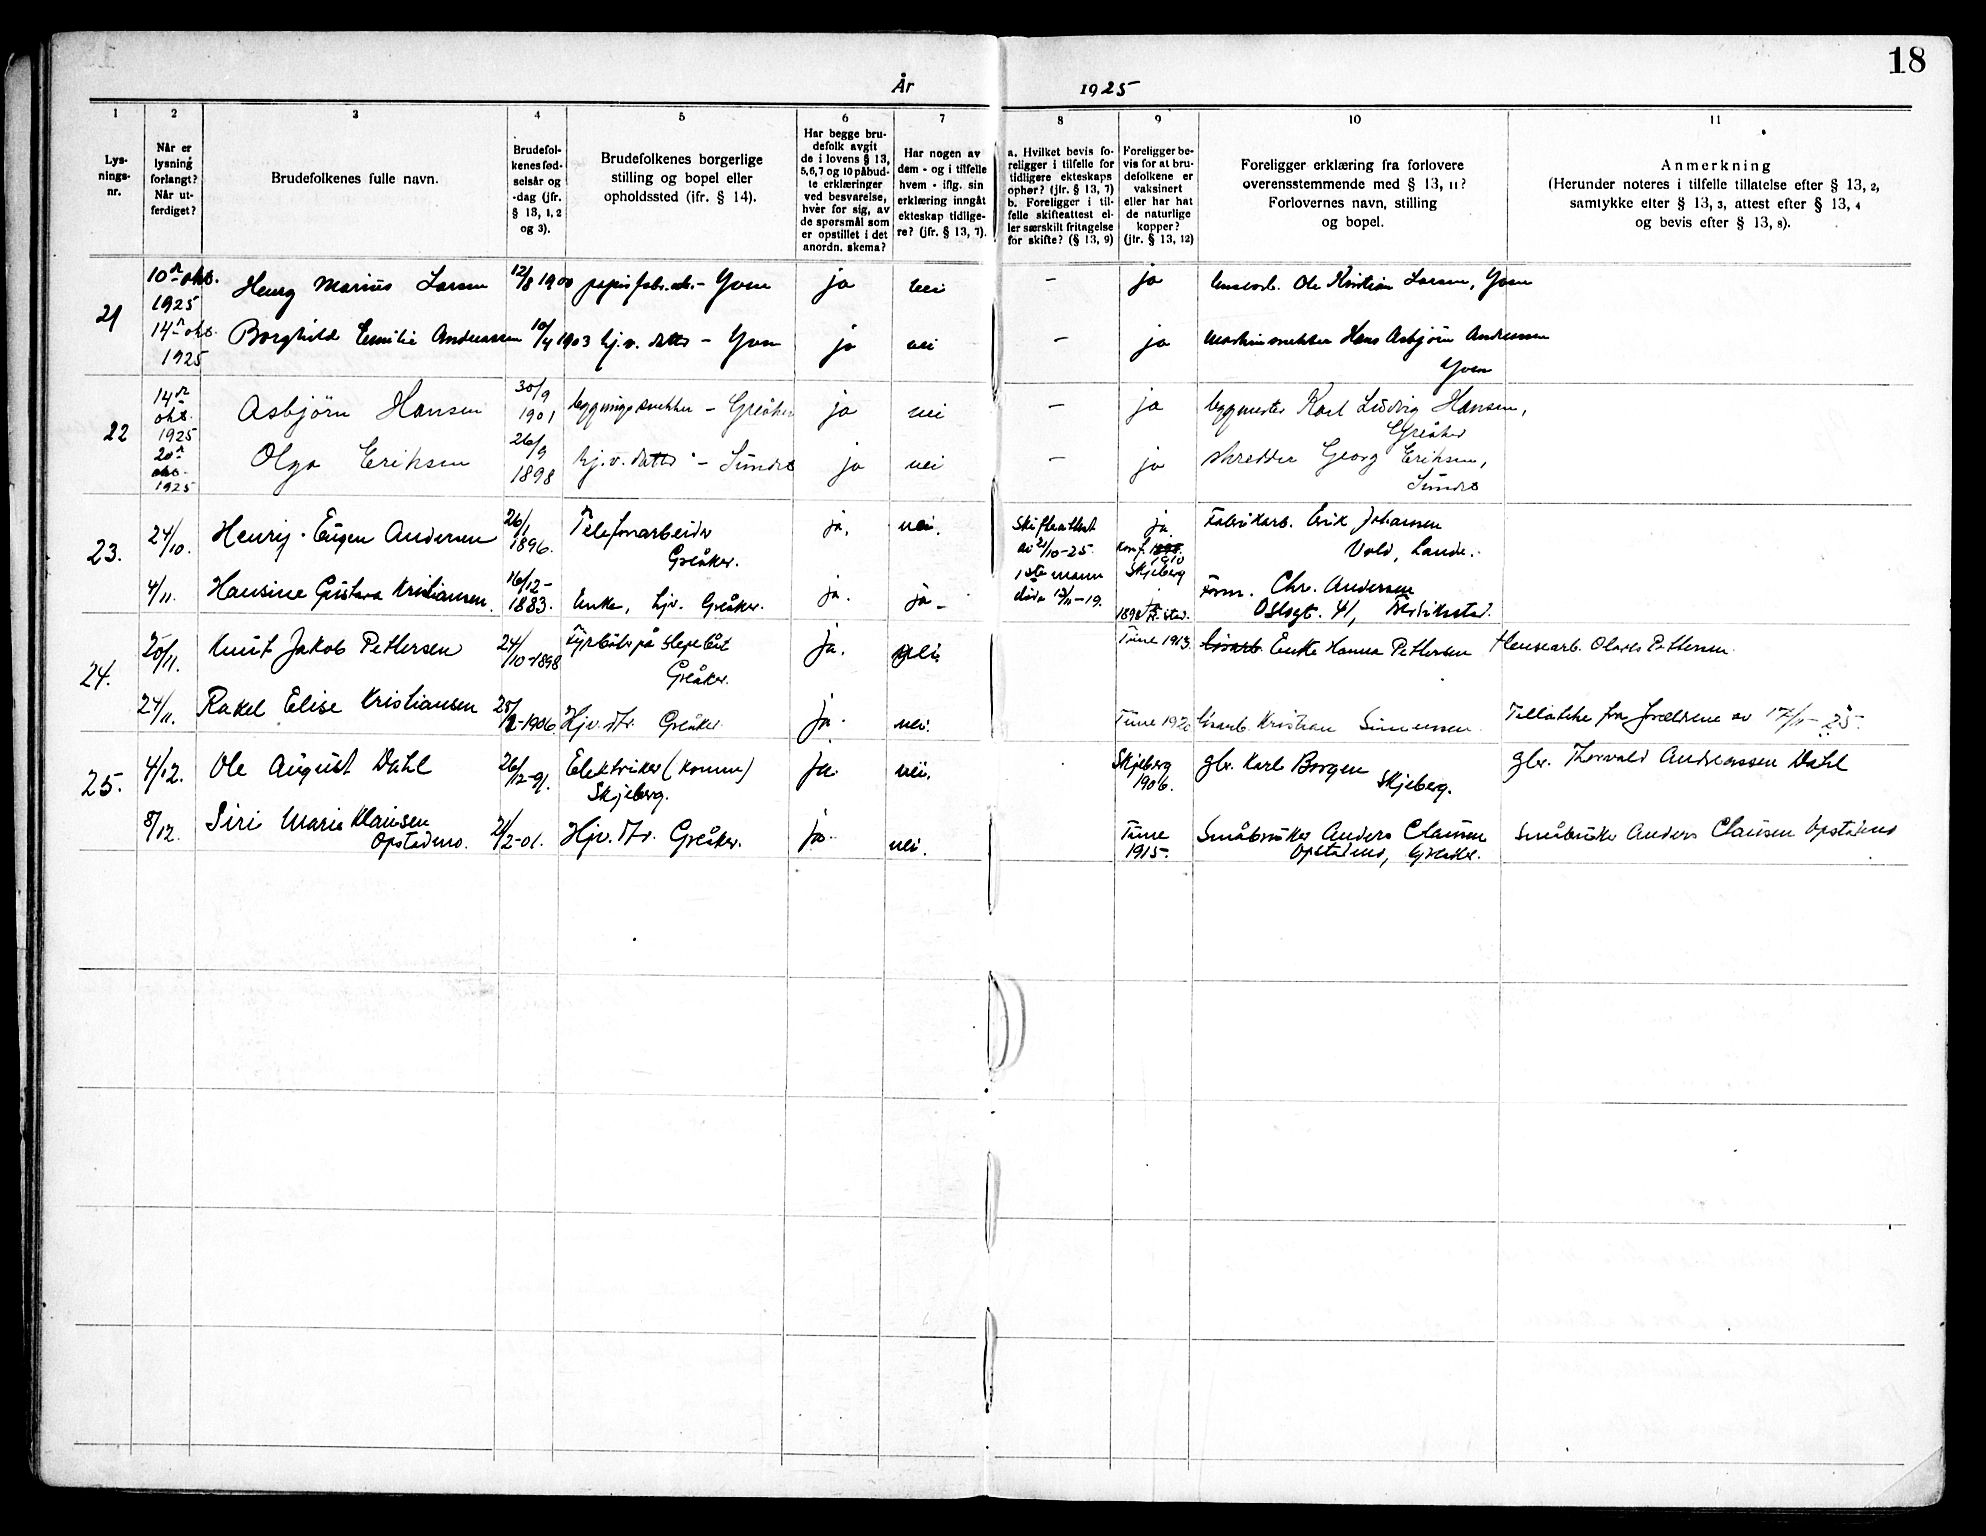 18
År 1925
1 2 3 4 5 6 7 8 9 10 11
Lys-
nings-
nr.
Når er
lysning
forlangt?
Når ut-
ferdiget?
Brudefolkenes fulle navn.
Brudefol-
kenes fød-
selsår og
-dag (jfr.
§ 13, 1, 2
og 3).
Brudefolkenes borgerlige
stilling og bopel eller
opholdssted (jfr. § 14).
Har begge bru-
defolk avgit
de i lovens § 13,
5, 6, 7 og 10 påbud-
te erklæringer
ved besvarelse,
hver for sig, av
de spørsmål som
er opstillet i det
anordn. skema?
Har nogen av
dem - og i tilfelle
hvem - iflg. sin
erklæring inngåt
ekteskap tidlige-
re? (jfr. § 13, 7).
a. Hvilket bevis fo-
religger i tilfelle for
tidligere ekteskaps
ophør? (jfr. § 13, 7)
b. Foreligger i til-
felle skifteattest el-
ler særskilt fritagelse
for skifte? (§ 13, 9)
Foreligger be-
vis for at bru-
defolkene er
vaksinert
eller har hat
de naturlige
kopper?
(jfr. § 13, 12)
Foreligger erklæring fra forlovere
overensstemmende med § 13, 11?
Forlovernes navn, stilling
og bopel.
Anmerkning
(Herunder noteres i tilfelle tillatelse efter § 13, 2,
samtykke efter § 13, 3, attest efter § 13, 4
og bevis efter § 13, 8).
21 10n okt. 1925 Henry Marius Larsen 12/8 1900 papirfabr.arb. - Yven ja nei - ja Ole Kristian Larsen, Yven
14n okt. 1925 Borghild Emilie Andreassen 10/4 1903 hj.v. datter - Yven ja nei - ja maskinsnekker Hans Asbjørn Andreassen
Yven
22 14n okt. 1925 Asbjörn Hansen 30/9 1901 bygningssnekker - Greåker ja nei - ja byggmester Karl Ludvig Hansen,
Greåker
20n okt. 1925 Olga Eriksen 26/9 1898 hj.v. datter - Sundet ja nei - ja skredder Georg Eriksen,
Sundet
23. 24/10. Henrij Eugen Andersen 26/1 1896. Telefonarbeider ja. nei. Skifteattest ja Fabrikarb. Erik Johansen
Greåker. av 21/10-25. Konf. 1910 Skjeberg Vold, Lande.
4/11. Hansine Gustava Kristiansen. 16/12- 1883. Enke, hjv. Greåker. ja. ja - 1ste mann død 12/11-19. 1898 Fr.stad. Form. Chr. Andersen
Oslogt. 41, Fredriksstad.
24. 20/11. Knut Jakob Pettersen 24/10-1898 Fyrbøter på slepebåt ja. nei. Tune 1913. Enke Hanna Pettersen Hensearb. Olaves Pettersen.
Greåker.
24/11. Rakel Elise Kristiansen 25/2-1906 Hjv. dtr. Greåker ja. nei. Tune 1920 løsarb. Kristian Simensen. Tillatelse fra forældrene av 17/11-25.
25. 4/12. Ole August Dahl 26/12-91. Elektriker (komm) ja nei. Skjeberg 1906. gbr. Karl Borgen gbr. Thorvald Andreassen Dahl
Skjeberg. Skjeberg.
8/12. Siri Marie Klausen 21/2-01. Hjv. dtr. Greåker. ja. nei. Tune 1915. Småbruker Anders Clausen Småbruker Anders Clausen Opstadmo
Opstadmo. Opstadmo, Greåker.